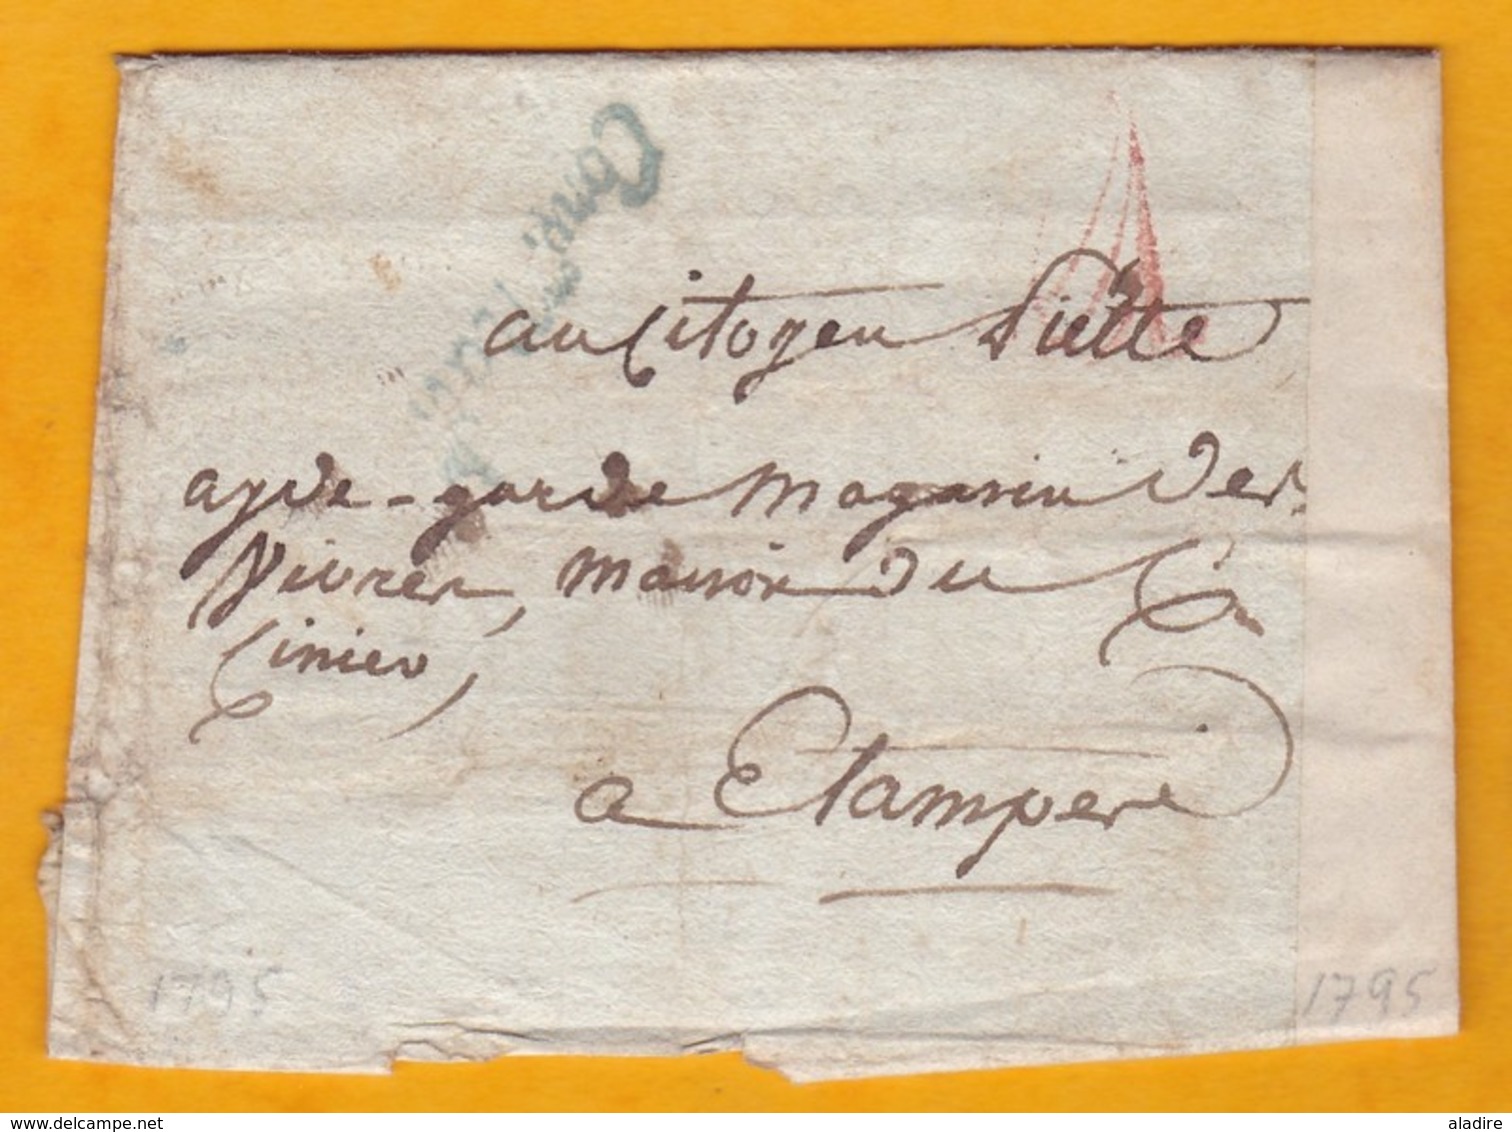 au Citoyen Piette
ayde-garde Magasin des
Vivres, maison du C
Cinier,
a Etampes
1795
1795
delcampe.net
aladire